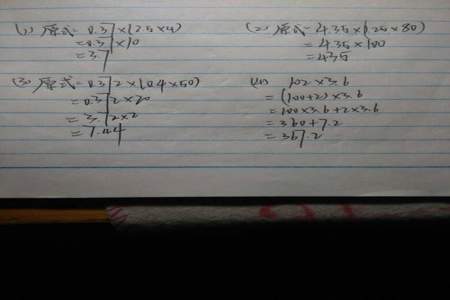 (1) 原式=0.37×(2.5×4)
=0.37×10
=3.7
(2) 原式=4.35×(1.25×80)
=4.35×100
=435
(3) 原式=0.372×(0.4×50)
=0.372×20
=3.72×2
=7.44
(4) 102×3.6
=(100+2)×3.6
=100×3.6+2×3.6
=360+7.2
=367.2